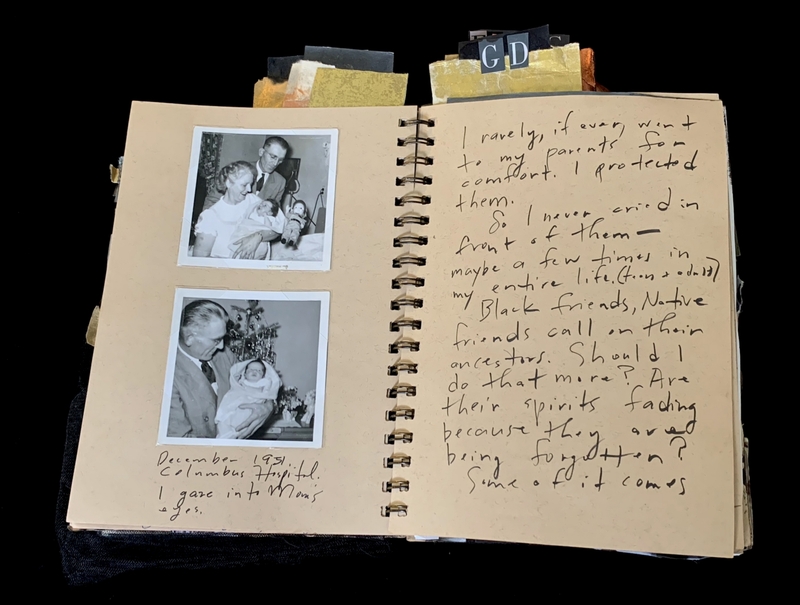 GD
December 1951
Columbus Hospital.
I gaze into Mom's
eyes.
I rarely, if ever, went
to my parents for
comfort. I protected
them.
So I never cried in
front of them —
maybe a few times in
my entire life. (teen & adult)
Black friends, Native
friends call on their
ancestors. Should I
do that more? Are
their spirits fading
because they are
being forgotten?
Some of it comes